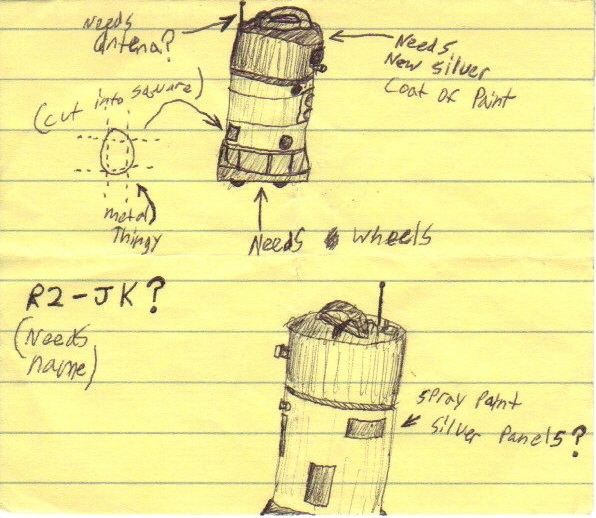 Needs
antena?
Needs
New silver
Coat of Paint
(cut into square)
metal
Thingy
Needs wheels
R2-JK?
(Needs
name)
spray paint
silver panels?